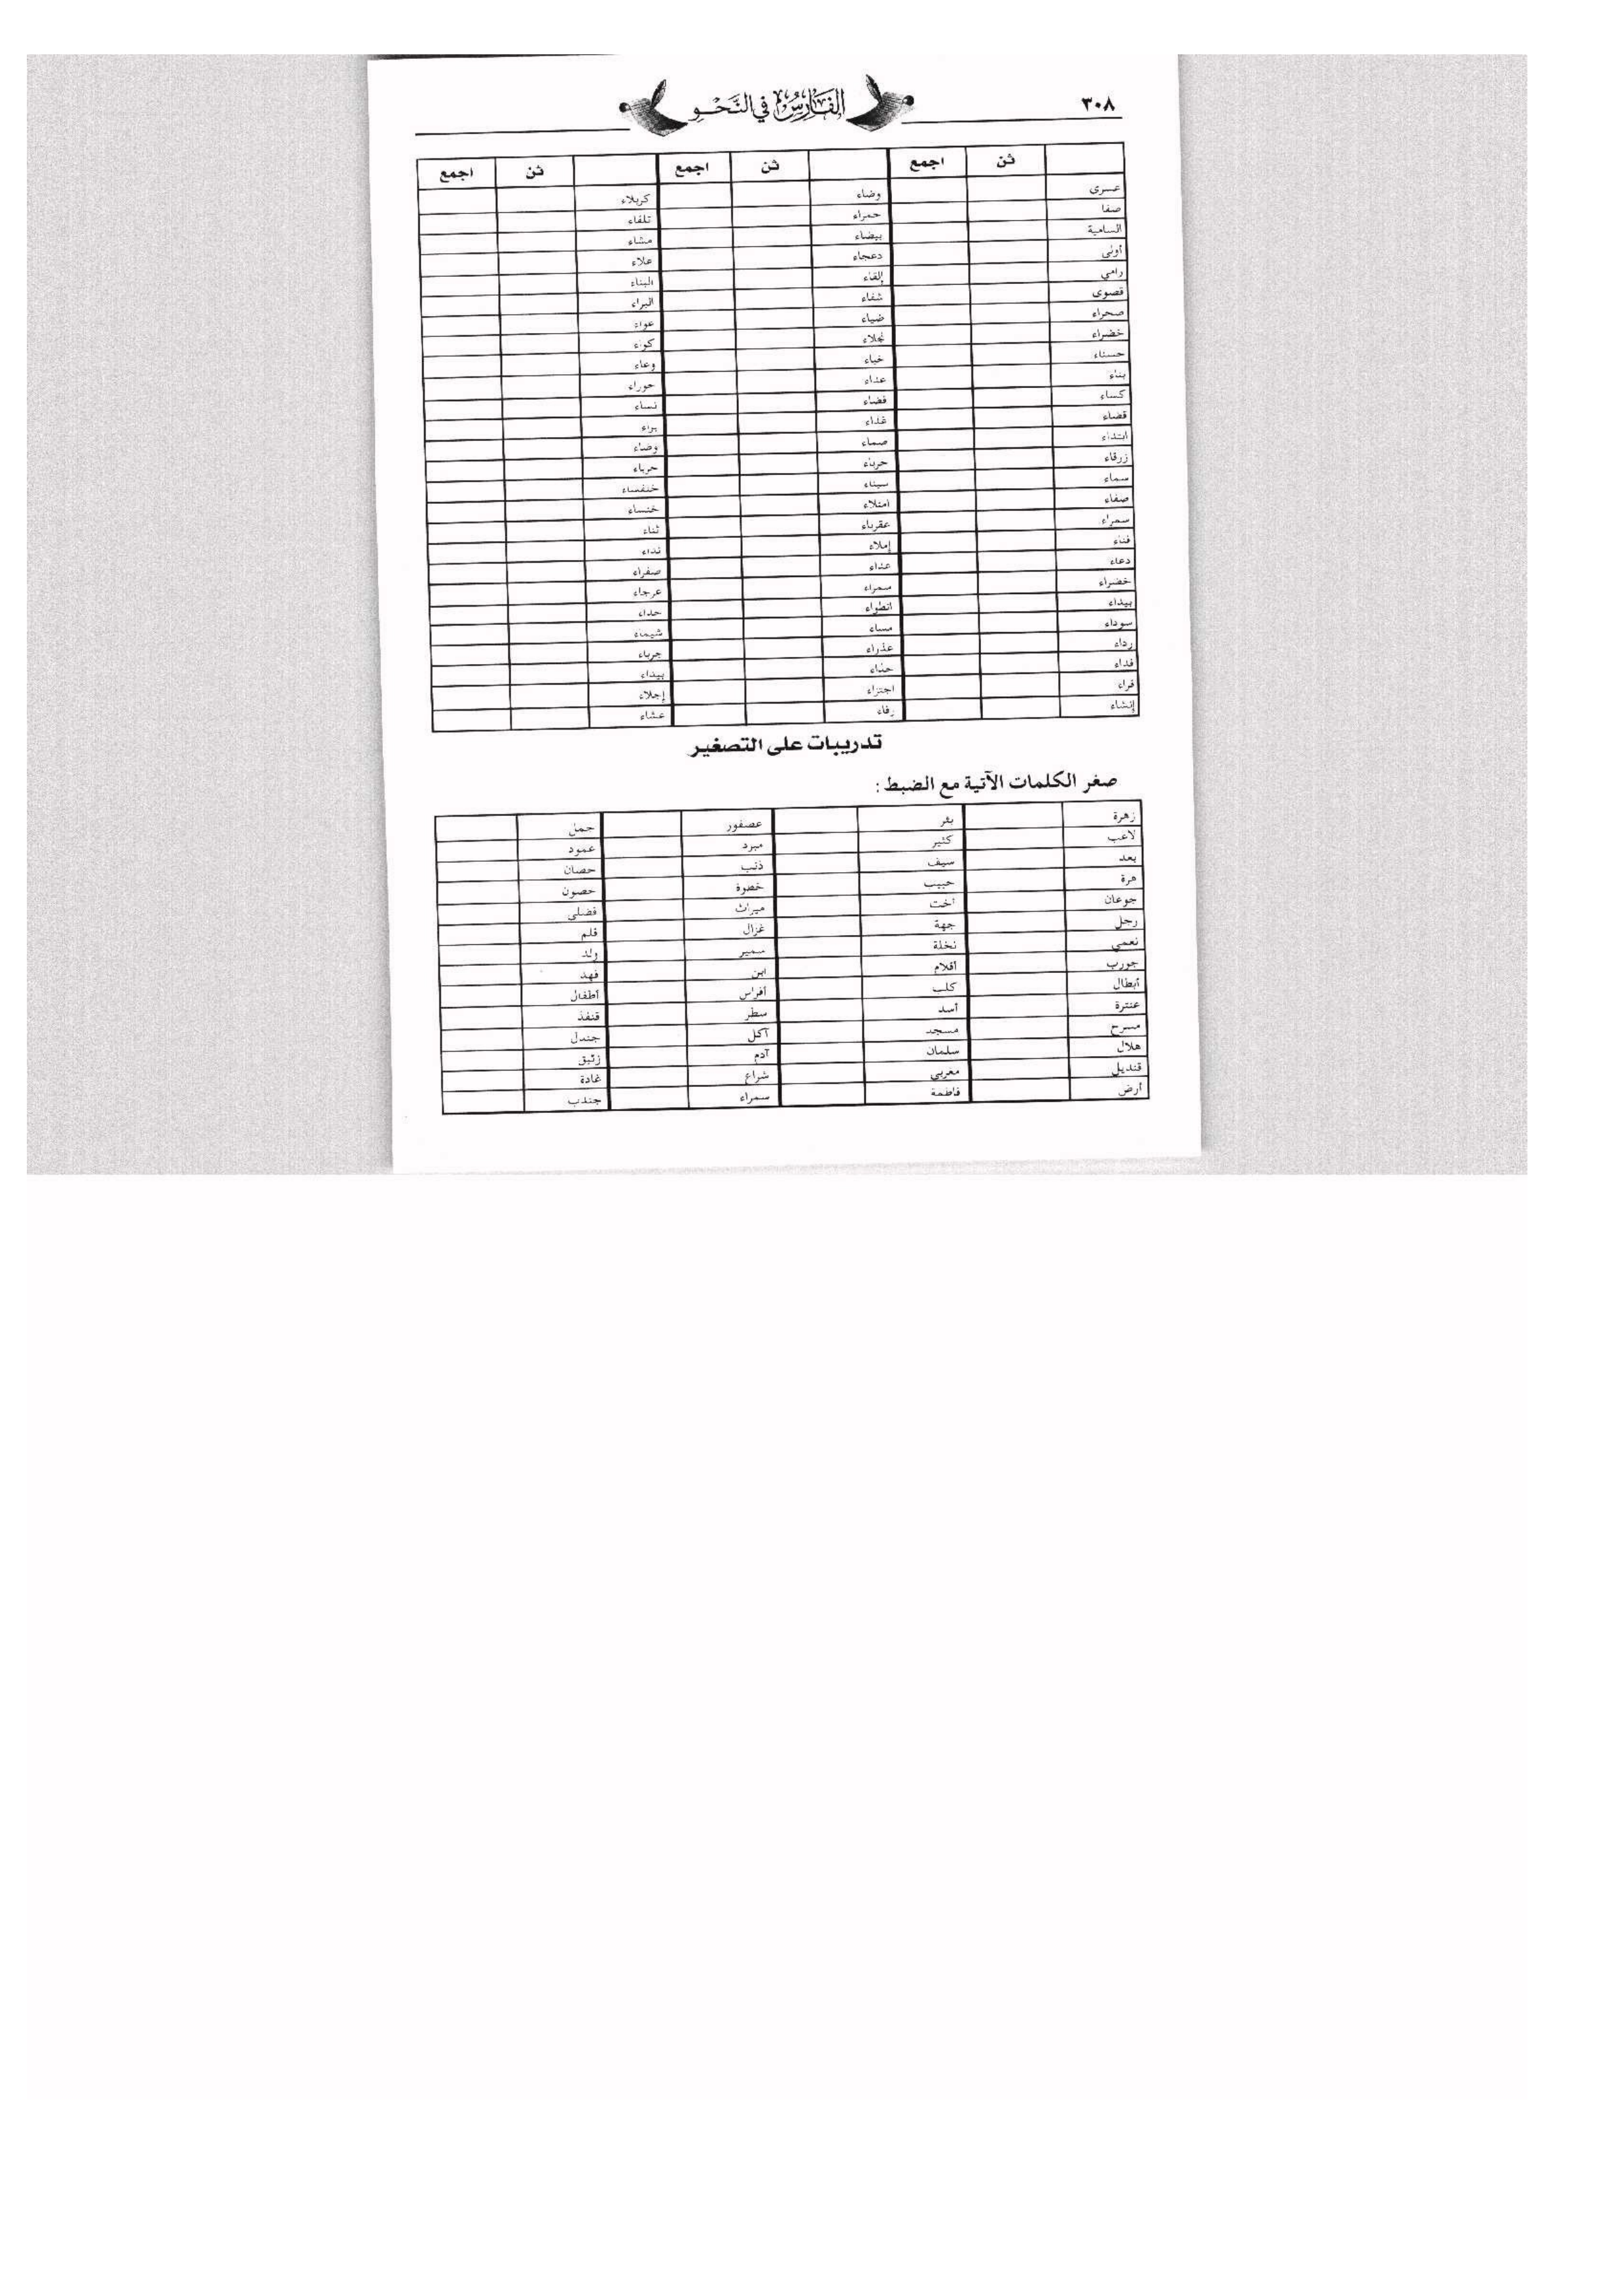 ٣٠٨ الفَارِسُ في النَّحْوِ
ثن اجمع ثن اجمع ثن اجمع
عسرى وضاء كربلاء
صفا حمراء تلقاء
السامية بيضاء مشاء
أولى دعجاء علاء
رامي إلقاء البناء
قصوى شفاء البراء
صحراء ضياء عواء
خضراء نجلاء كواء
حسناء خباء وعاء
بناء عداء حوراء
كساء فضاء نساء
قضاء غداء براء
ابتداء صماء وضاء
زرقاء حرباء حرباء
سماء سيناء خنفساء
صفاء امتلاء خنساء
سمراء عقرباء ثناء
فناء إملاء نداء
دعاء عداء صفراء
خضراء سمراء عرجاء
بيداء انطواء حداء
سوداء مساء شيماء
رداء عذراء جرباء
فداء حذاء بيداء
قراء اجتزاء إجلاء
إنشاء رفاء عشاء
تدريبات على التصغير
صغر الكلمات الآتية مع الضبط :
زهرة بئر عصفور حمل
لاعب كثير مبرد عمود
بعد سيف ذئب حصان
هرة حبيب خطوة حصون
جوعان أخت ميراث فضلى
رجل جهة غزال قلم
نعمى نخلة سمير ولد
جورب أقلام ابن فهد
أبطال كلب أفراس أطفال
عنترة أسد سطر قنفذ
مسرح مسجد آكل جندل
هلال سلمان آدم زئبق
قنديل مغربي شراع غادة
أرض فاطمة سمراء جندب